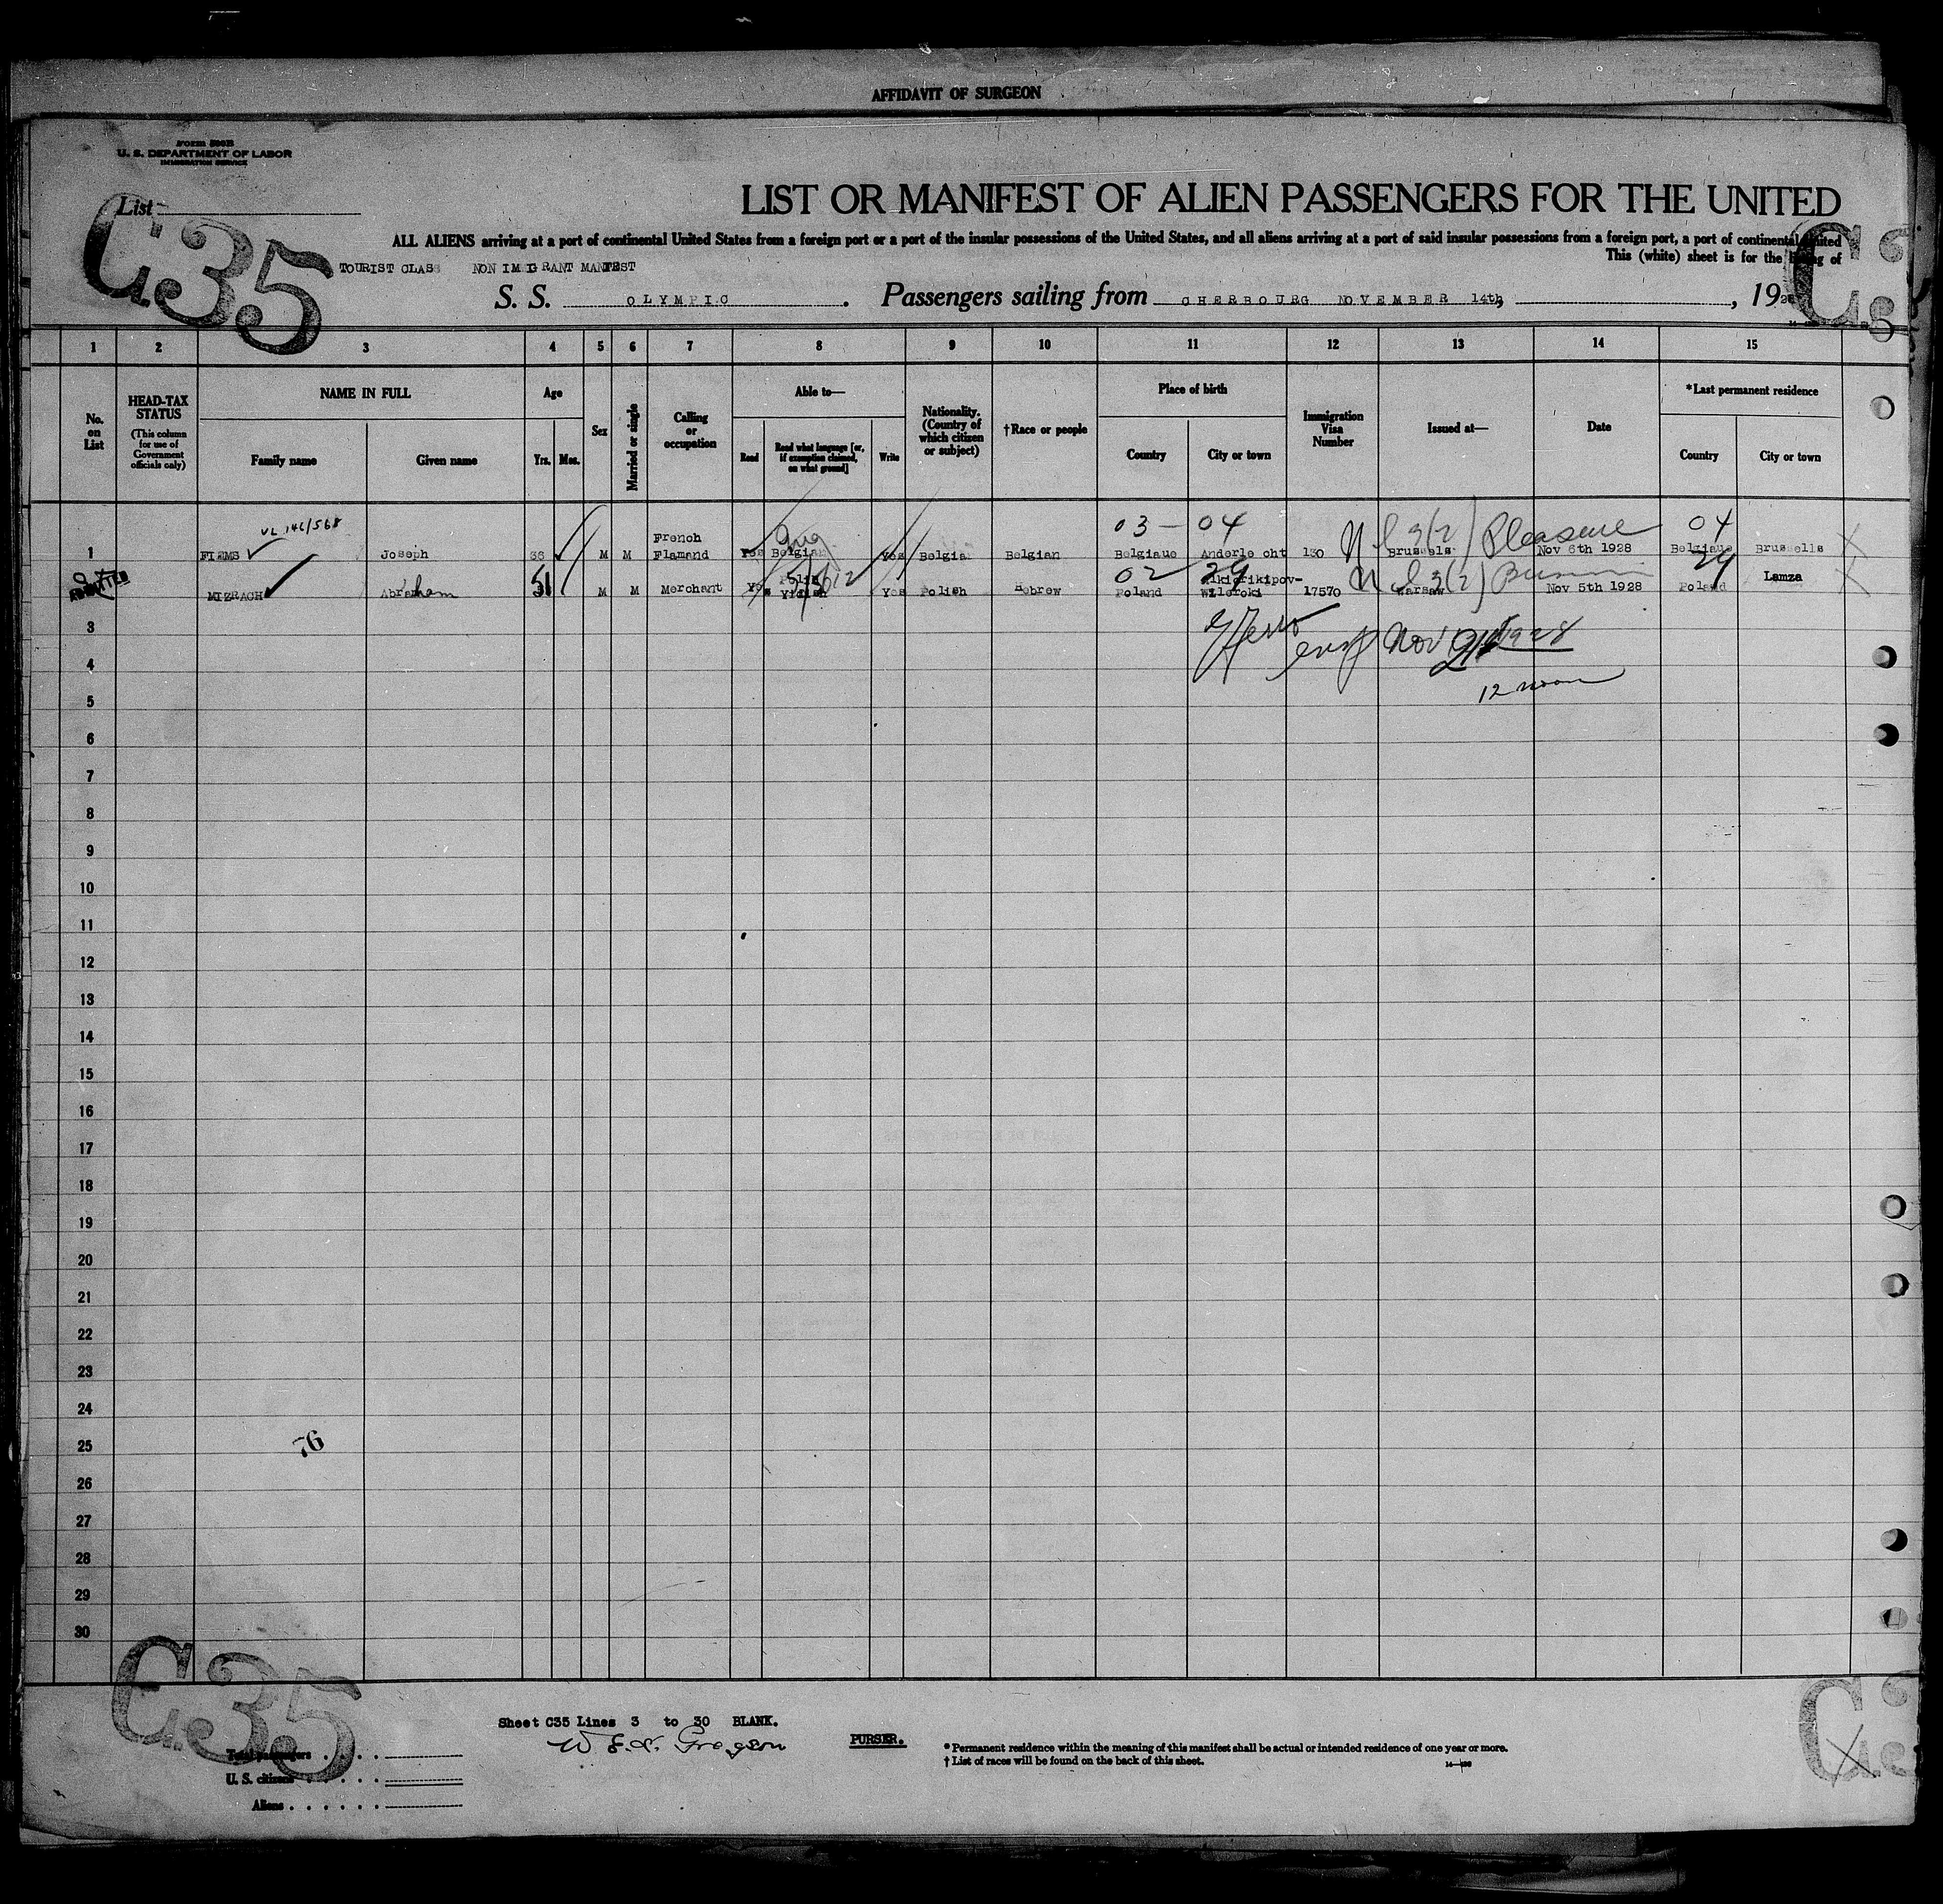 AFFIDAVIT OF SURGEON
U. S. DEPARTMENT OF LABOR
IMMIGRATION SERVICE
List
C35
LIST OR MANIFEST OF ALIEN PASSENGERS FOR THE UNITED
ALL ALIENS arriving at a port of continental United States from a foreign port or a port of the insular possessions of the United States, and all aliens arriving at a port of said insular possessions from a foreign port, a port of continental United
This (white) sheet is for the listing of
TOURIST CLASS NON IMIGRANT MANIFEST
S. S. OLYMPIC . Passengers sailing from CHERBOURG NOVEMBER 14th, , 1928
1 2 3 4 5 6 7 8 9 10 11 12 13 14 15
No. on List
HEAD-TAX STATUS
(This column for use of Government officials only)
NAME IN FULL
Family name Given name
Age
Yrs. Mos.
Sex
Married or single
Calling or occupation
Able to—
Read Read what language [or, if exemption claimed, on what ground] Write
Nationality. (Country of which citizen or subject)
†Race or people
Place of birth
Country City or town
Immigration Visa Number
Issued at—
Date
*Last permanent residence
Country City or town
03 - 04 3(2) Pleasure 04
1 FIEMS Joseph 36 M M French Flamand Yes Belgian Yes Belgian Belgian Belgique Anderle cht 130 Brussels Nov 6th 1928 Belgique Brussells
02 29 3(2) 29
ADMITTED MIZRACH Abraham 51 M M Merchant Yes Polish Yidish Yes Polish Hebrew Poland 17570 Warsaw Nov 5th 1928 Poland Lomza
Nov 21st 1928
12 noon
3
4
5
6
7
8
9
10
11
12
13
14
15
16
17
18
19
20
21
22
23
24
25 76
26
27
28
29
30
C35
Sheet C35 Lines 3 to 30 BLANK.
Gregson PURSER.
Total passengers
U. S. citizens
Aliens
* Permanent residence within the meaning of this manifest shall be actual or intended residence of one year or more.
† List of races will be found on the back of this sheet.